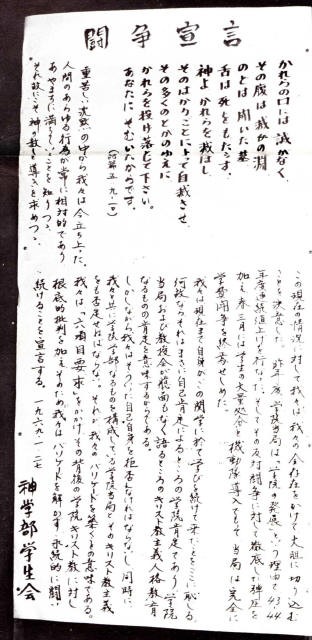 闘争宣言
かれらの口には誠がなく、
その腹は滅亡の淵
のどは開いた墓
舌は死をもたらす。
神よかれらを裁ばし
そのはかりごとによって自裁させ、
その多くのとがのゆえに
かれらを投げ落として下さい。
あなたにそむいたからです。
(詩 五 九-一〇)
重苦しい沈黙の中から我々は今立ち上った。
人間のあらゆる行為が常に相対的であり
あやまちに満ちていることを知りつゝ、
それ故にこそ神の教えと導きを求めつゝ、
この現在の情況に対して我々は、我々の全存在をかけて大胆に切り込む
ことを決意した。昨年度、学院当局は「学院の発展」という理由で43、44
年度連続値上げを行なった。そしてその反対闘争に対して徹底した弾圧を
加え、春三月には学生の大量処分と機動隊導入でもって当局は完全に
学費闘争を終焉せしめた。
我々は現在まで自身がこの関学に於て学びを続けて来たことを心に恥じる。
何故ならそれはまさに自己肯定によるところの学院肯定であり、学院
当局および教授会が臆面もなく語るところのキリスト教主義人格教育
なるものの肯定を意味するからである。
しかしながら我々はそういった自己自身を拒否しなければならないし、同時に
我々と共に学院・学部なるものを構成している学院当局、そのキリスト教主義
をも否定せねばならない。それが我々のバリケードを築くことの意味である。
我々は、「六項目要求」をかかげ、その背後の学院、キリスト教に対し
根底的批判を加え、そのため我々はバリケードを解かず永続的に闘い
続けることを宣言する。 一九六九・一・二七
神学部学生会